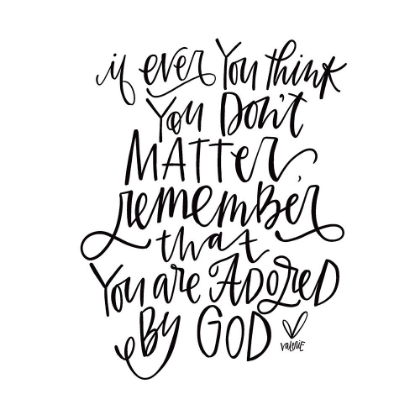 if ever You think
You Don't
MATTer,
remember
that
You are ADOReD
By GOD
valerie